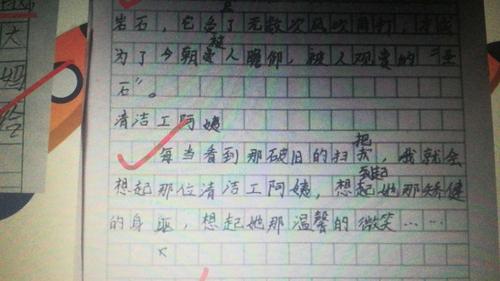 岩石，它经了无数次风吹雨打，才成
为了今朝被人瞻仰，被人观赏的“
石”。
清洁工阿姨
每当看到那破旧的扫把，我就会
想起那位清洁工阿姨，想起她那矫健
的身躯，想起她那温馨的微笑……